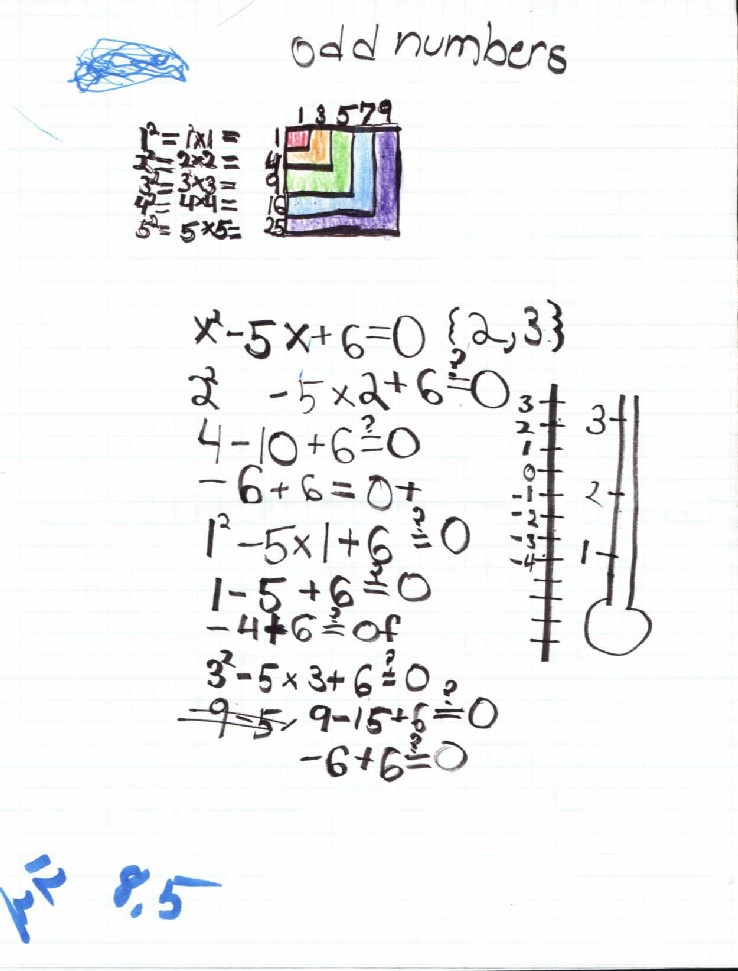 odd numbers
1 3 5 7 9
1² = 1x1 = 1
2² = 2x2 = 4
3² = 3x3 = 9
4² = 4x4 = 16
5² = 5x5 = 25
x² - 5x + 6 = 0 {2, 3}
2² - 5 x 2 + 6 ≟ 0
4 - 10 + 6 ≟ 0
-6 + 6 = 0 t
1² - 5 x 1 + 6 ≟ 0
1 - 5 + 6 ≟ 0
-4 + 6 ≟ 0 f
3² - 5 x 3 + 6 ≟ 0
-9 - 5, 9 - 15 + 6 ≟ 0
-6 + 6 ≟ 0
3
2
1
0
-1
-2
-3
-4
3
2
1
8.5